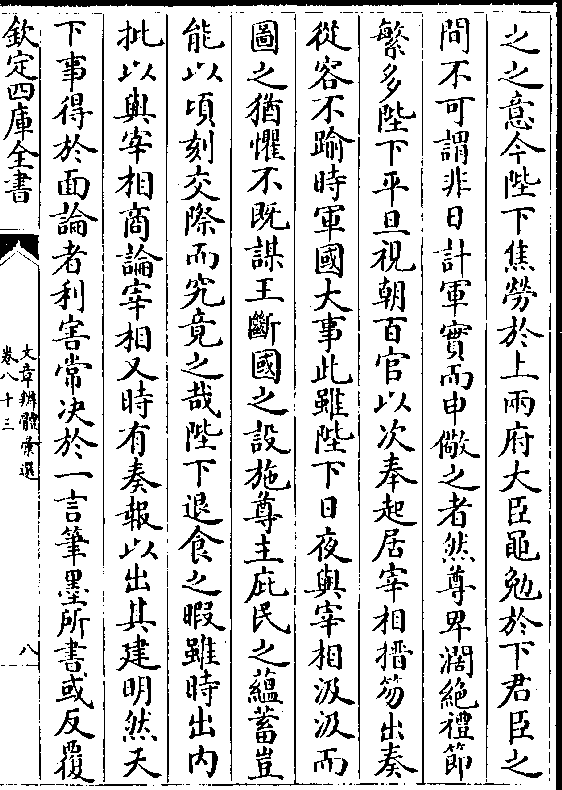 之之意今陛下焦勞於上兩府大臣黽勉於下君臣之
間不可謂非日計軍實而申儆之者然尊卑濶絶禮節
繁多陛下平旦視朝百官以次奉起居宰相搢笏出奏
從容不踰時軍國大事此雖陛下日夜與宰相汲汲而
圖之猶懼不既謀王斷國之設施尊主庇民之藴蓄豈
能以頃刻交際而究竟之哉陛下退食之暇雖時出内
批以與宰相商論宰相又時有奏報以出其建明然天
下事得於面論者利害常决於一言筆墨所書或反覆
欽定四庫全書
文章辨體彚選
卷八十三
八